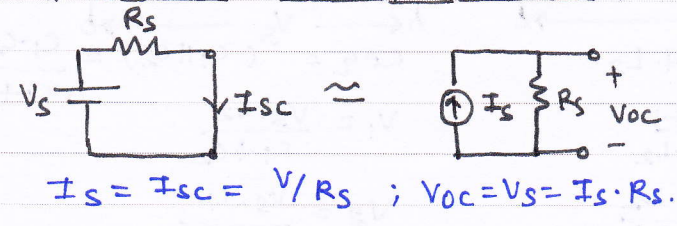 Rs
Vs
Isc
≃
Is
Rs
+
Voc
−
Is = Isc = V/Rs ; Voc = Vs = Is · Rs.